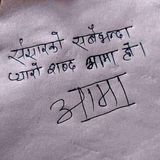 संसारको सबैभन्दा
प्यारो शब्द आमा हो।
आमा